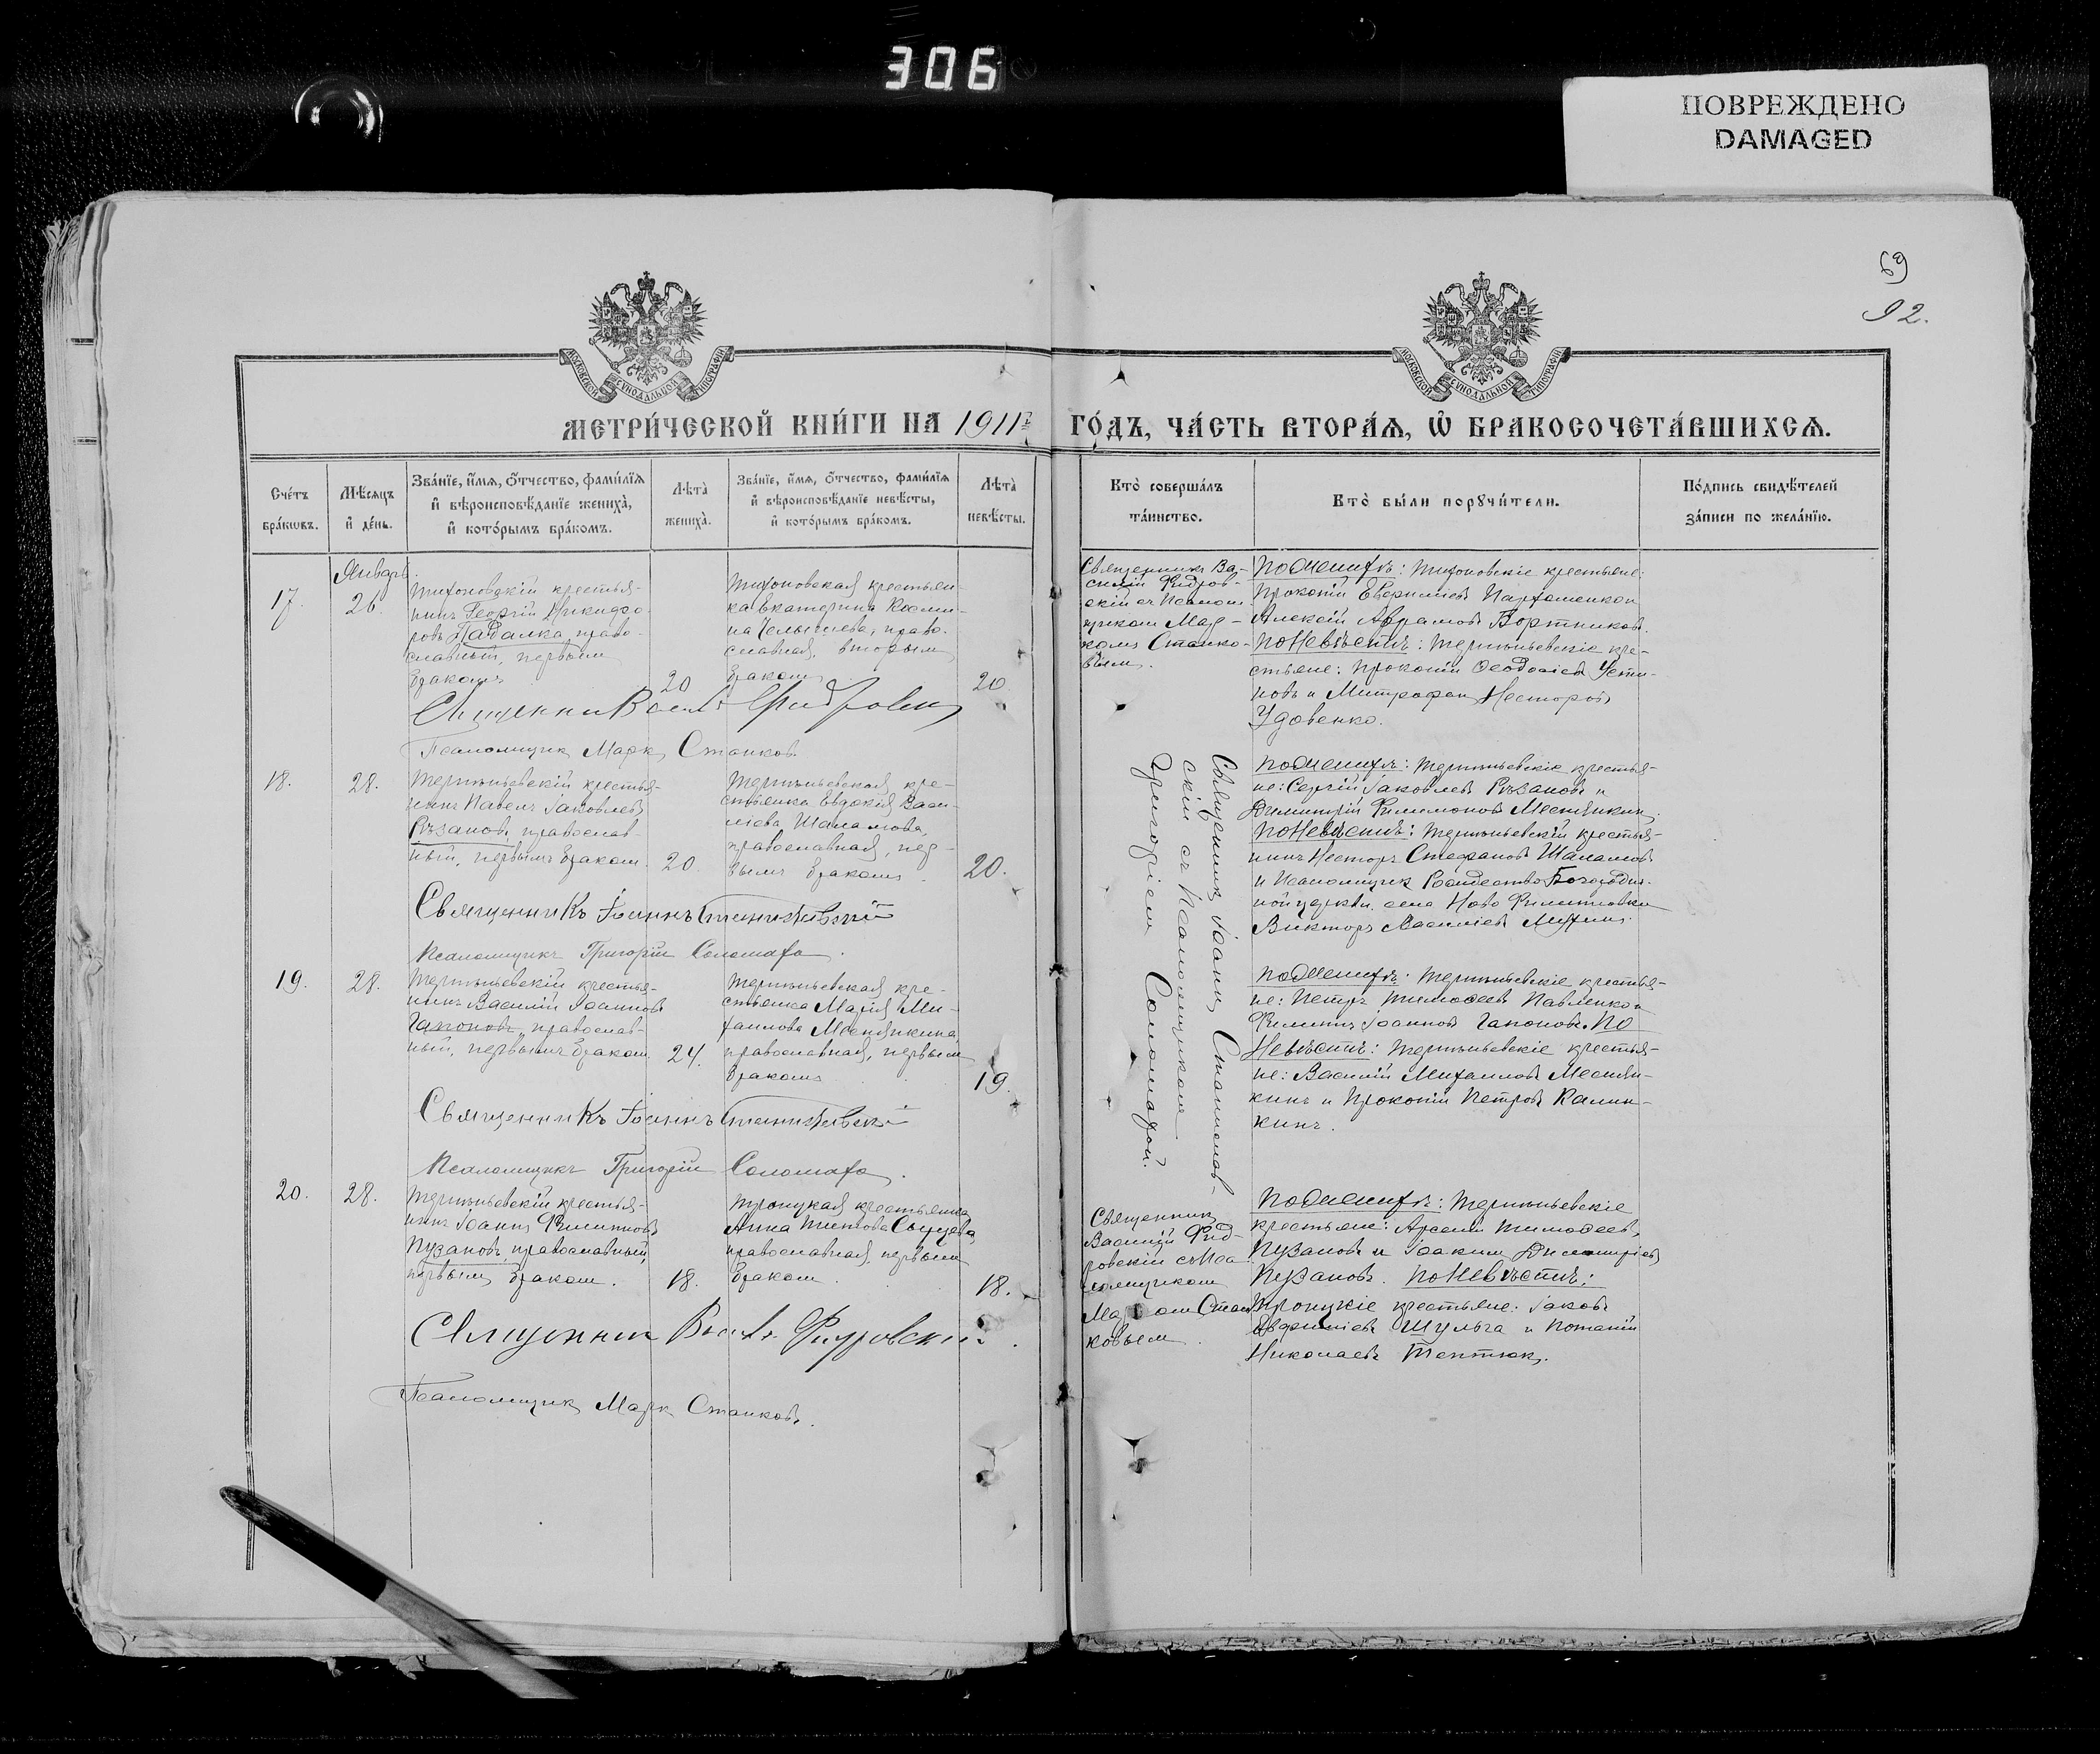 306
ПОВРЕЖДЕНО
DAMAGED
69
92.
МОСКОВСКОЙ СѴНОДАЛЬНОЙ ТИПОГРАФІИ
МОСКОВСКОЙ СѴНОДАЛЬНОЙ ТИПОГРАФІИ
МЕТРИ́ЧЕСКОЙ КНИ́ГИ НА 1911 г
ГО́ДЪ, ЧА́СТЬ ВТОРА́Ѧ, Ѡ҆ БРАКОСОЧЕТА́ВШИХСѦ.
Сче́тъ бра́кѡвъ.
Мѣ́сѧцъ и҆ де́нь.
Зва́нїе, и҆́мѧ, ѻ҆́тчество, фами́лїѧ и҆ вѣроисповѣ́данїе жениха̀, и҆ кото́рымъ бра́комъ.
Лѣта̀ жениха̀.
Зва́нїе, и҆́мѧ, ѻ҆́тчество, фами́лїѧ и҆ вѣроисповѣ́данїе невѣ́сты, и҆ кото́рымъ бра́комъ.
Лѣта̀ невѣ́сты.
Кто̀ соверша́лъ та́инство.
Кто̀ бы́ли порꙋчи́тели.
По́дпись свидѣ́телей за́писи по жела́нїю.
Январь
17.
26.
Тихоновскій крестья-
нинъ Георгій Никифо-
ровъ Падалка, право-
славный, первымъ
бракомъ
20
Тихоновская крестьян-
ка Екатерина Косми-
на Челышева, право-
славная, вторым
бракомъ
20
Священник Ва-
силій Фидров-
скій съ псалом-
щиком Мар-
комъ Станко-
вым.
По женихѣ: Тихоновскіе крестьяне:
Прокопій Евфиміевъ Пархоменко и
Алексій Аврамовъ Бортниковъ.
По невѣстѣ: Терпѣньевскіе кре-
стьяне: Прокопій Ѳеодосіевъ Усти-
новъ и Митрофан Несторовъ
Удовенко.
Священник Васил. Фидровскій
Псаломщик Марк Станков
18.
28.
Терпѣньевскій крестья-
нинъ Павелъ Іаковлевъ
Рѣзановъ, православ-
ный, первымъ браком.
20
Терпѣньевская кре-
стьянка Евдокія Васи-
ліева Шаламова,
православная, пер-
вымъ бракомъ.
20.
Священник Іоанн Станиславов-
скій съ псаломщиком
Григоріем Соломахой.
По женихѣ: Терпѣньевскіе крестья-
не: Сергій Іаковлевъ Рѣзановъ и
Димитрій Филимоновъ Местяикин.
По невѣстѣ: Терпѣньевскій крестья-
нинъ Несторъ Стефановъ Шаламовъ
и псаломщик Рождество-Богороди-
ной церкви села Ново Филиповки
Викторъ Василіевъ Мухин.
Священникъ Іоаннъ Станиславскій
Псаломщикъ Григорій Соломаха.
19.
28.
Терпѣньевскій крестья-
нинъ Василій Іоанновъ
Гапоновъ, православ-
ный, первымъ браком.
24.
Терпѣньевская кре-
стьянка Марія Ми-
хаилова Местяикина,
православная, первым
бракомъ
19.
По женихѣ: Терпѣньевскіе крестья-
не: Петръ Тимоѳеевъ Павленко и
Филиппъ Іоаннов Гапоновъ. По
невѣстѣ: Терпѣньевскіе крестья-
не: Василій Михаиловъ Местяи-
кинъ и Прокопій Петровъ Калин-
кинъ.
Священникъ Іоаннъ Станиславскій
Псаломщикъ Григорій Соломаха.
20.
28.
Терпѣньевскій крестья-
нинъ Іоаннъ Филипповъ
Пузановъ православный,
первым браком.
18.
Троицкая крестьянка
Анна Титова
православная, первым
браком.
18.
Священник
Василій Фид-
ровскій съ пса-
ломщиком
Марком Стан-
ковым.
По женихѣ: Терпѣньевскіе
крестьяне: Арсеній Тимоѳеев
Пузановъ и Іоаким Димитріев
Пузановъ. По невѣстѣ:
Троицкіе крестьяне: Іаковъ
Евфиміевъ Шульга и Потапій
Николаевъ Тептюк.
Священник Васил. Фидровскій.
Псаломщик Марк Станковъ.